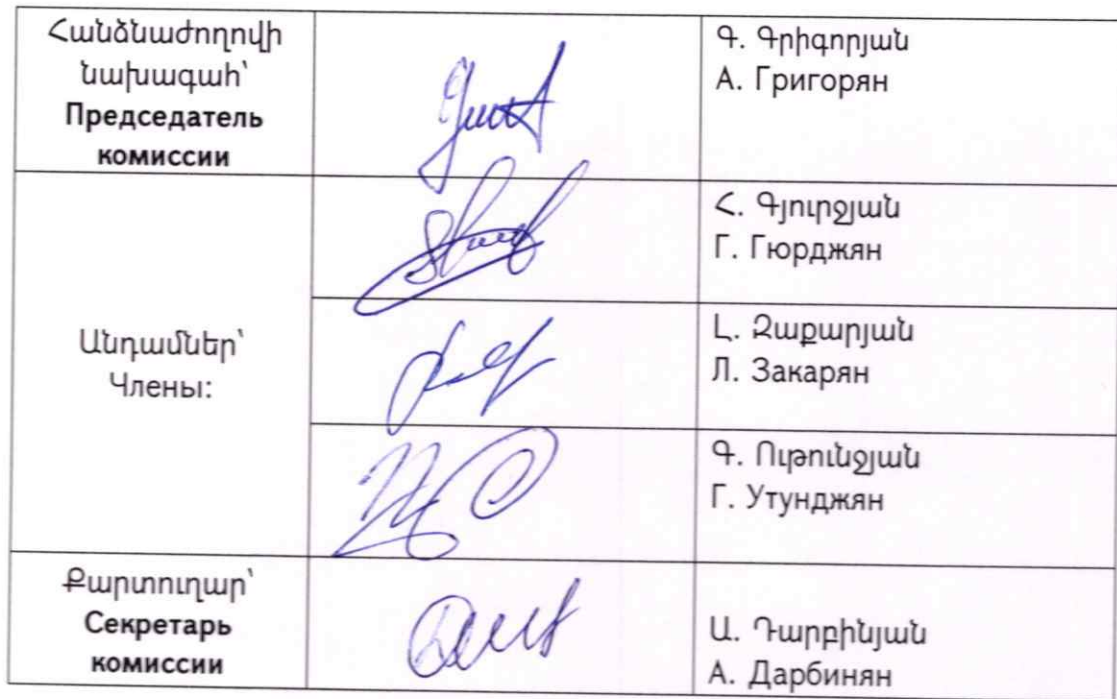 Հանձնաժողովի
նախագահ՝
Председатель
комиссии
Գ. Գրիգորյան
А. Григорян
Անդամներ՝
Члены:
Հ. Գյուրջյան
Г. Гюрджян
Լ. Զաքարյան
Л. Закарян
Գ. Ութունջյան
Г. Утунджян
Քարտուղար՝
Секретарь
комиссии
Ա. Դարբինյան
А. Дарбинян